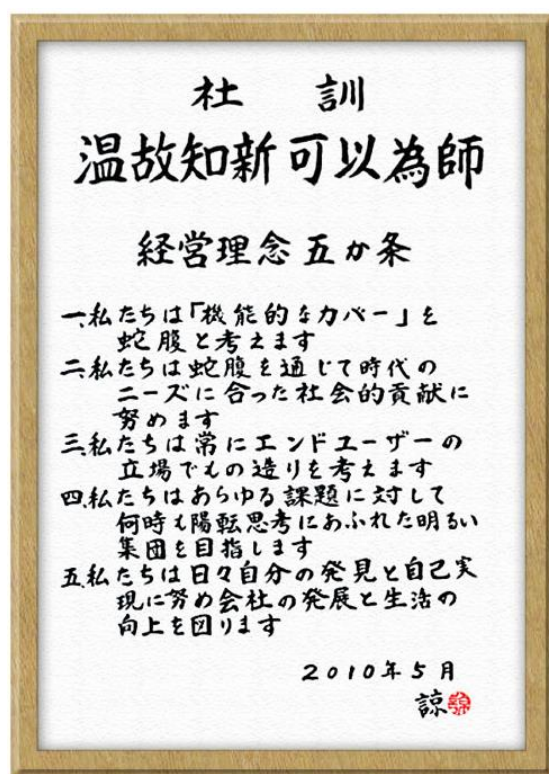 社 訓
温故知新可以為師
経営理念五か条
一、私たちは「機能的なカバー」を
蛇腹と考えます
二、私たちは蛇腹を通じて時代の
ニーズに合った社会的貢献に
努めます
三、私たちは常にエンドユーザーの
立場でもの造りを考えます
四、私たちはあらゆる課題に対して
何時も陽転思考にあふれた明るい
集団を目指します
五、私たちは日々自分の発見と自己実
現に努め会社の発展と生活の
向上を図ります
2010年5月
諒